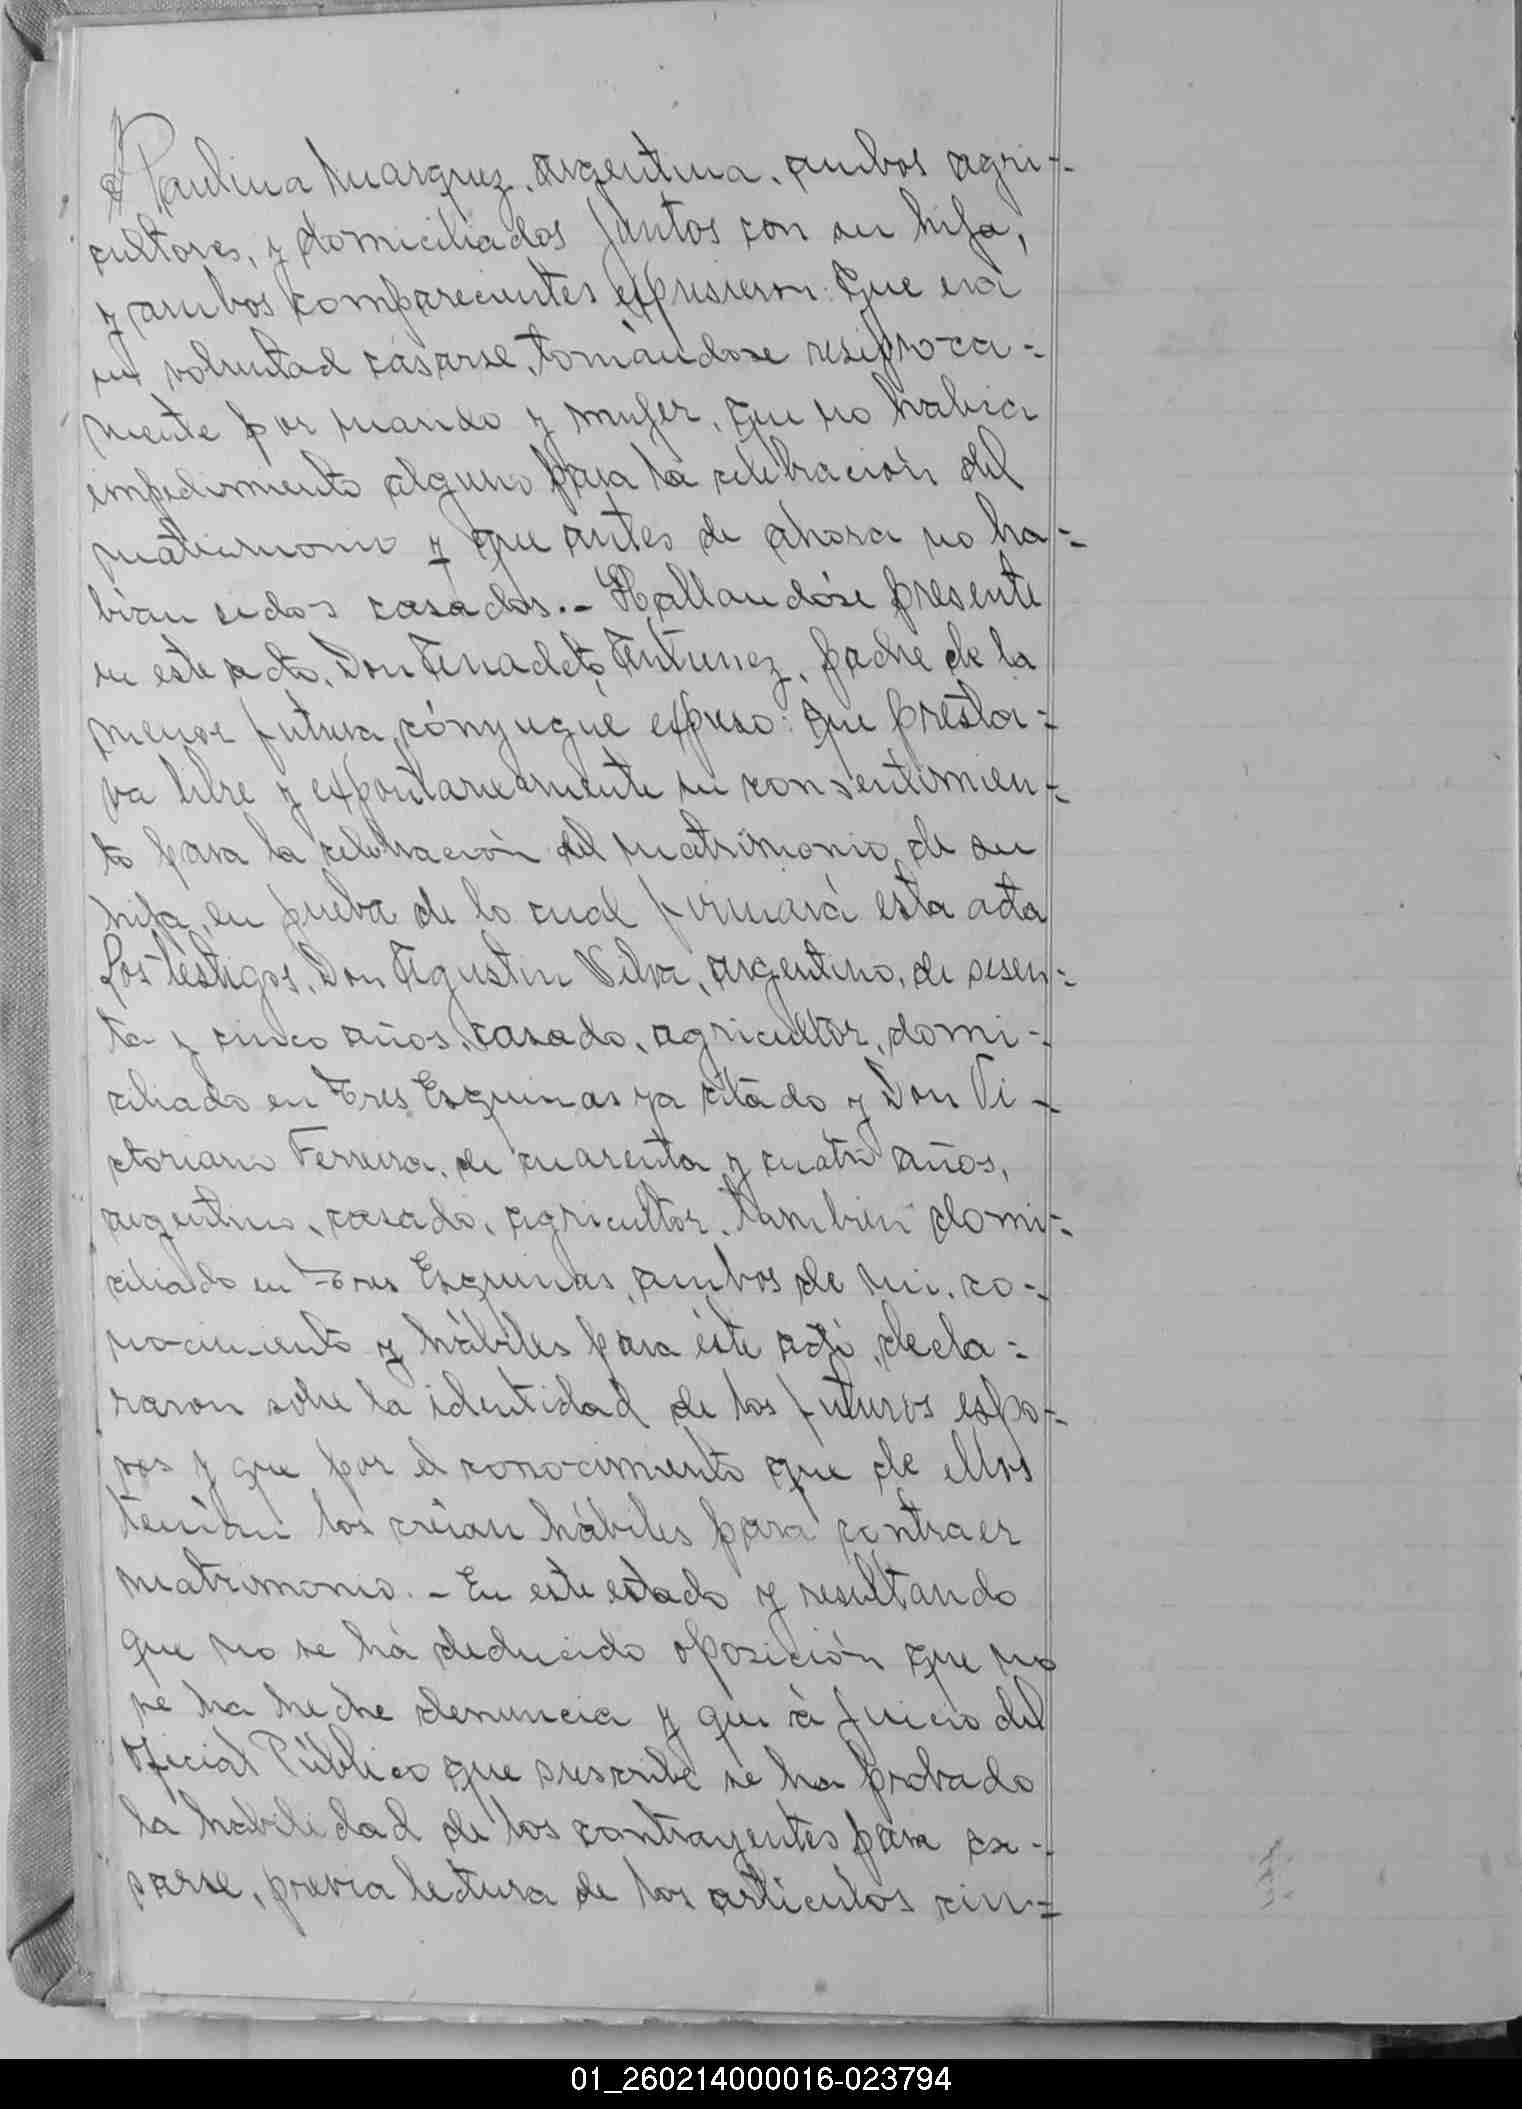 Paulina Marquez, argentina, ambos agri-
cultores, y domiciliados juntos con su hija,
y ambos comparecientes expresaron: Que era
su voluntad casarse, tomándose resiproca-
mente por marido y mujer, que no habia
impedimento alguno para la celebración del
matrimonio y que antes de ahora no ha-
bian sidos casados.- Hallandóse presente
en este acto, Don Antunez, padre de la
menor futura cónyugue expuso: que presta-
va libre y expontaneamente su consentimien-
to para la celebración del matrimonio de su
hija, en prueba de lo cual firmará esta acta
Los testigos, Don Agustin Silva, argentino, de sesen-
ta y cinco años, casado, agricultor, domi-
ciliado en Tres Esquinas ya citado y Don Vi-
ctoriano Ferreira, de cuarenta y cuatro años,
argentino, casado, agricultor, tambien domi-
ciliado en Tres Esquinas, ambos de mi co-
nocimiento y hábiles para éste acto, decla-
raron sobre la identidad de los futuros espo-
sos y que por el conocimiento que de ellos
tenian los creian hábiles para contraer
matrimonio.- En este estado y resultando
que no se há deducido oposición que no
se ha heche denuncia y que á juicio del
Oficial Público que suscribe se ha probado
la habilidad de los contrayentes para ca-
sarse, previa lectura de los articulos cin-
01_260214000016-023794